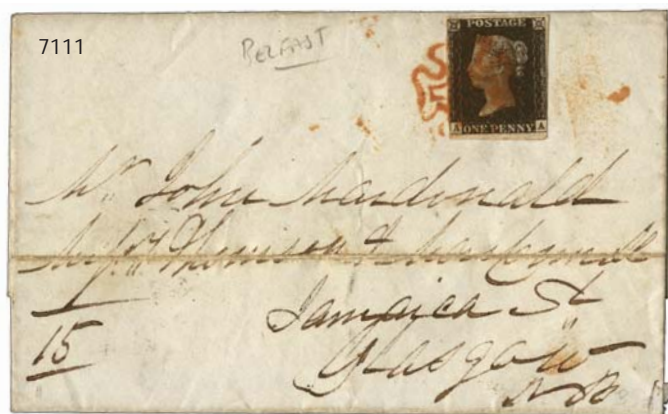 7111
BELFAST
POSTAGE
A ONE PENNY A
Mr. John Macdonald
Thomson &
Jamaica St
15
Glasgow
NB